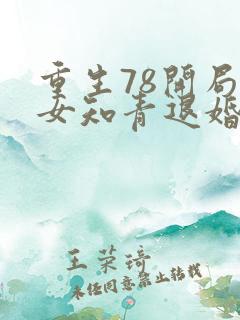 重生78开局
女知青退婚
王荣琦
未经同意禁止转载